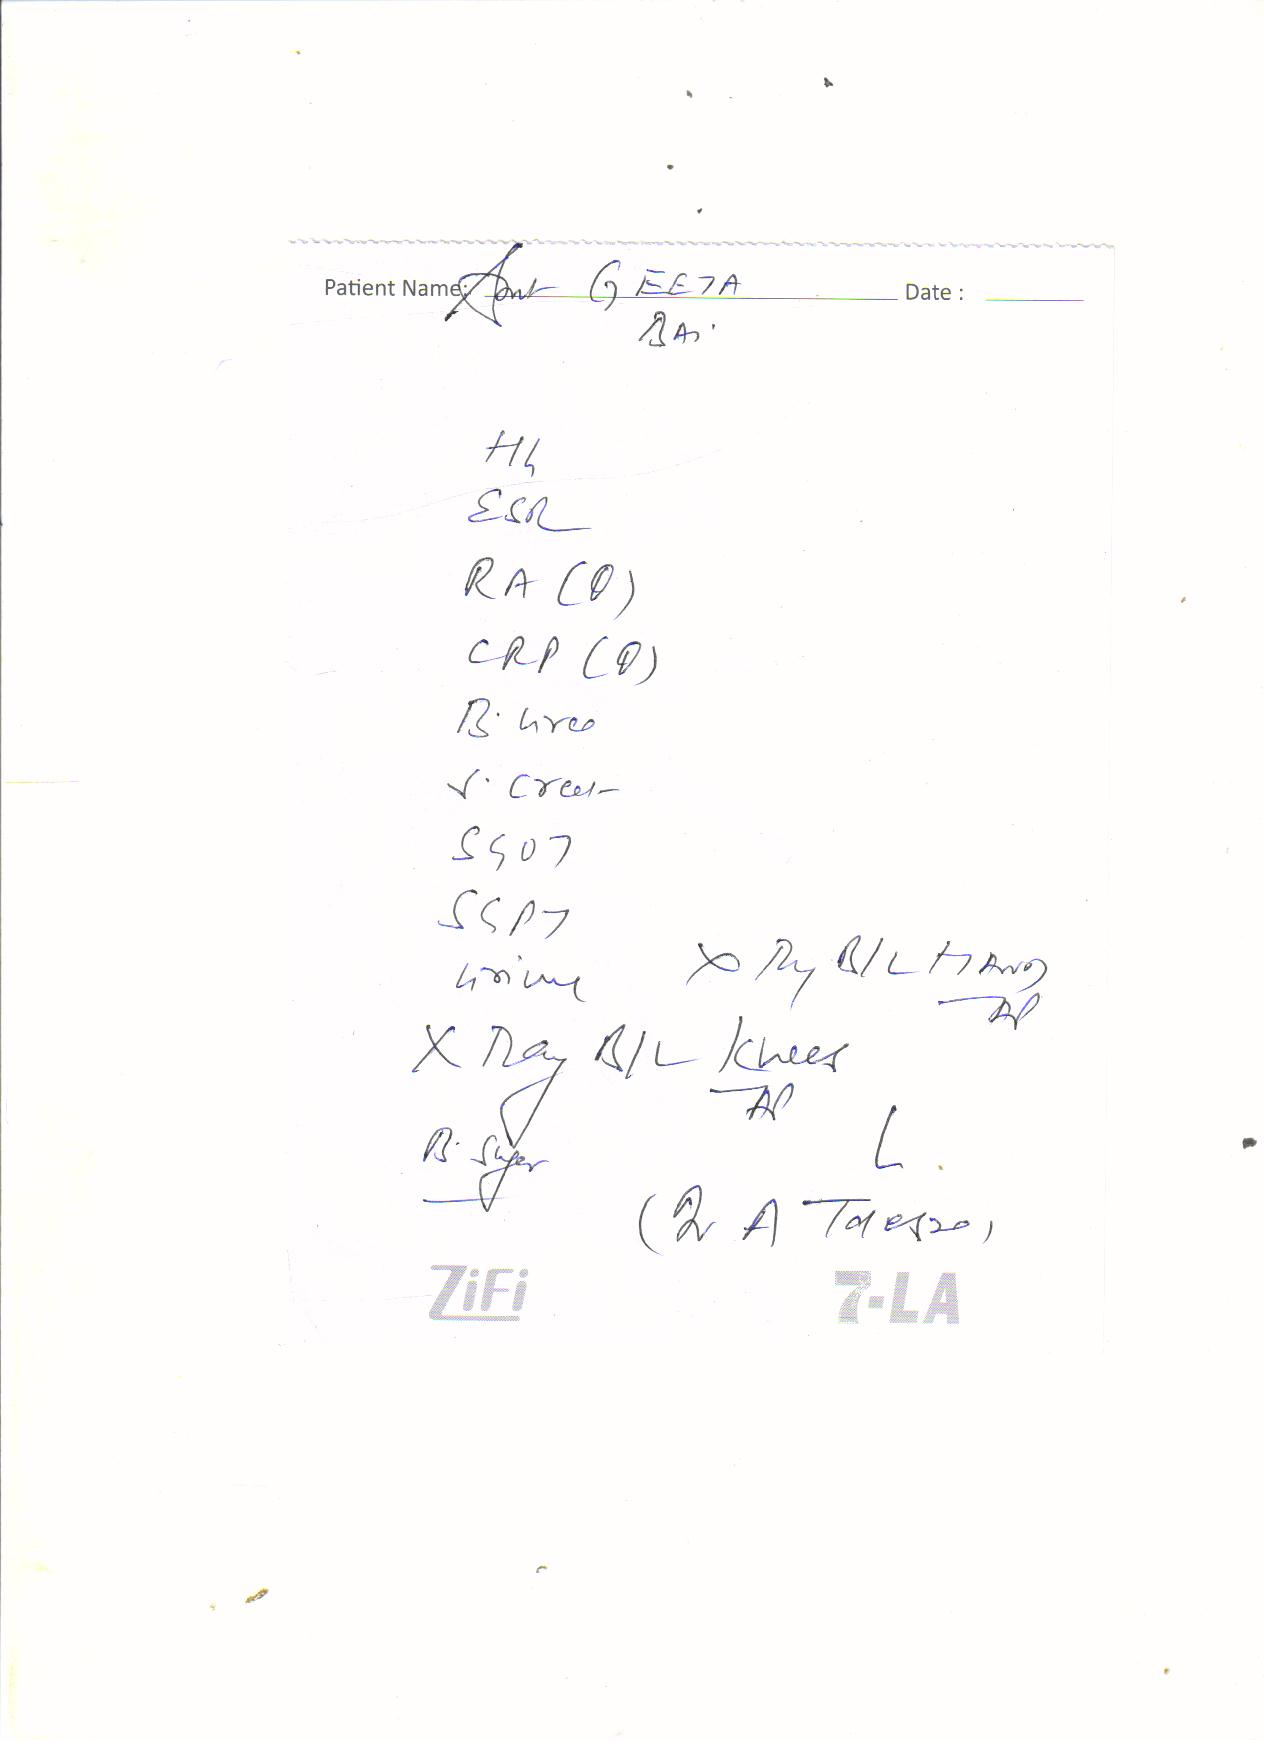 Patient Name: Smt GEETA Date :
BAi
Hb
ESR
RA (Q)
CRP (Q)
B. Urea
S. Creat
SGOT
SGPT
Urine
X Ray B/L HAND
AP
X Ray B/L Knees
AP
B. Sugar
(Dr A
ZiFi 7-LA